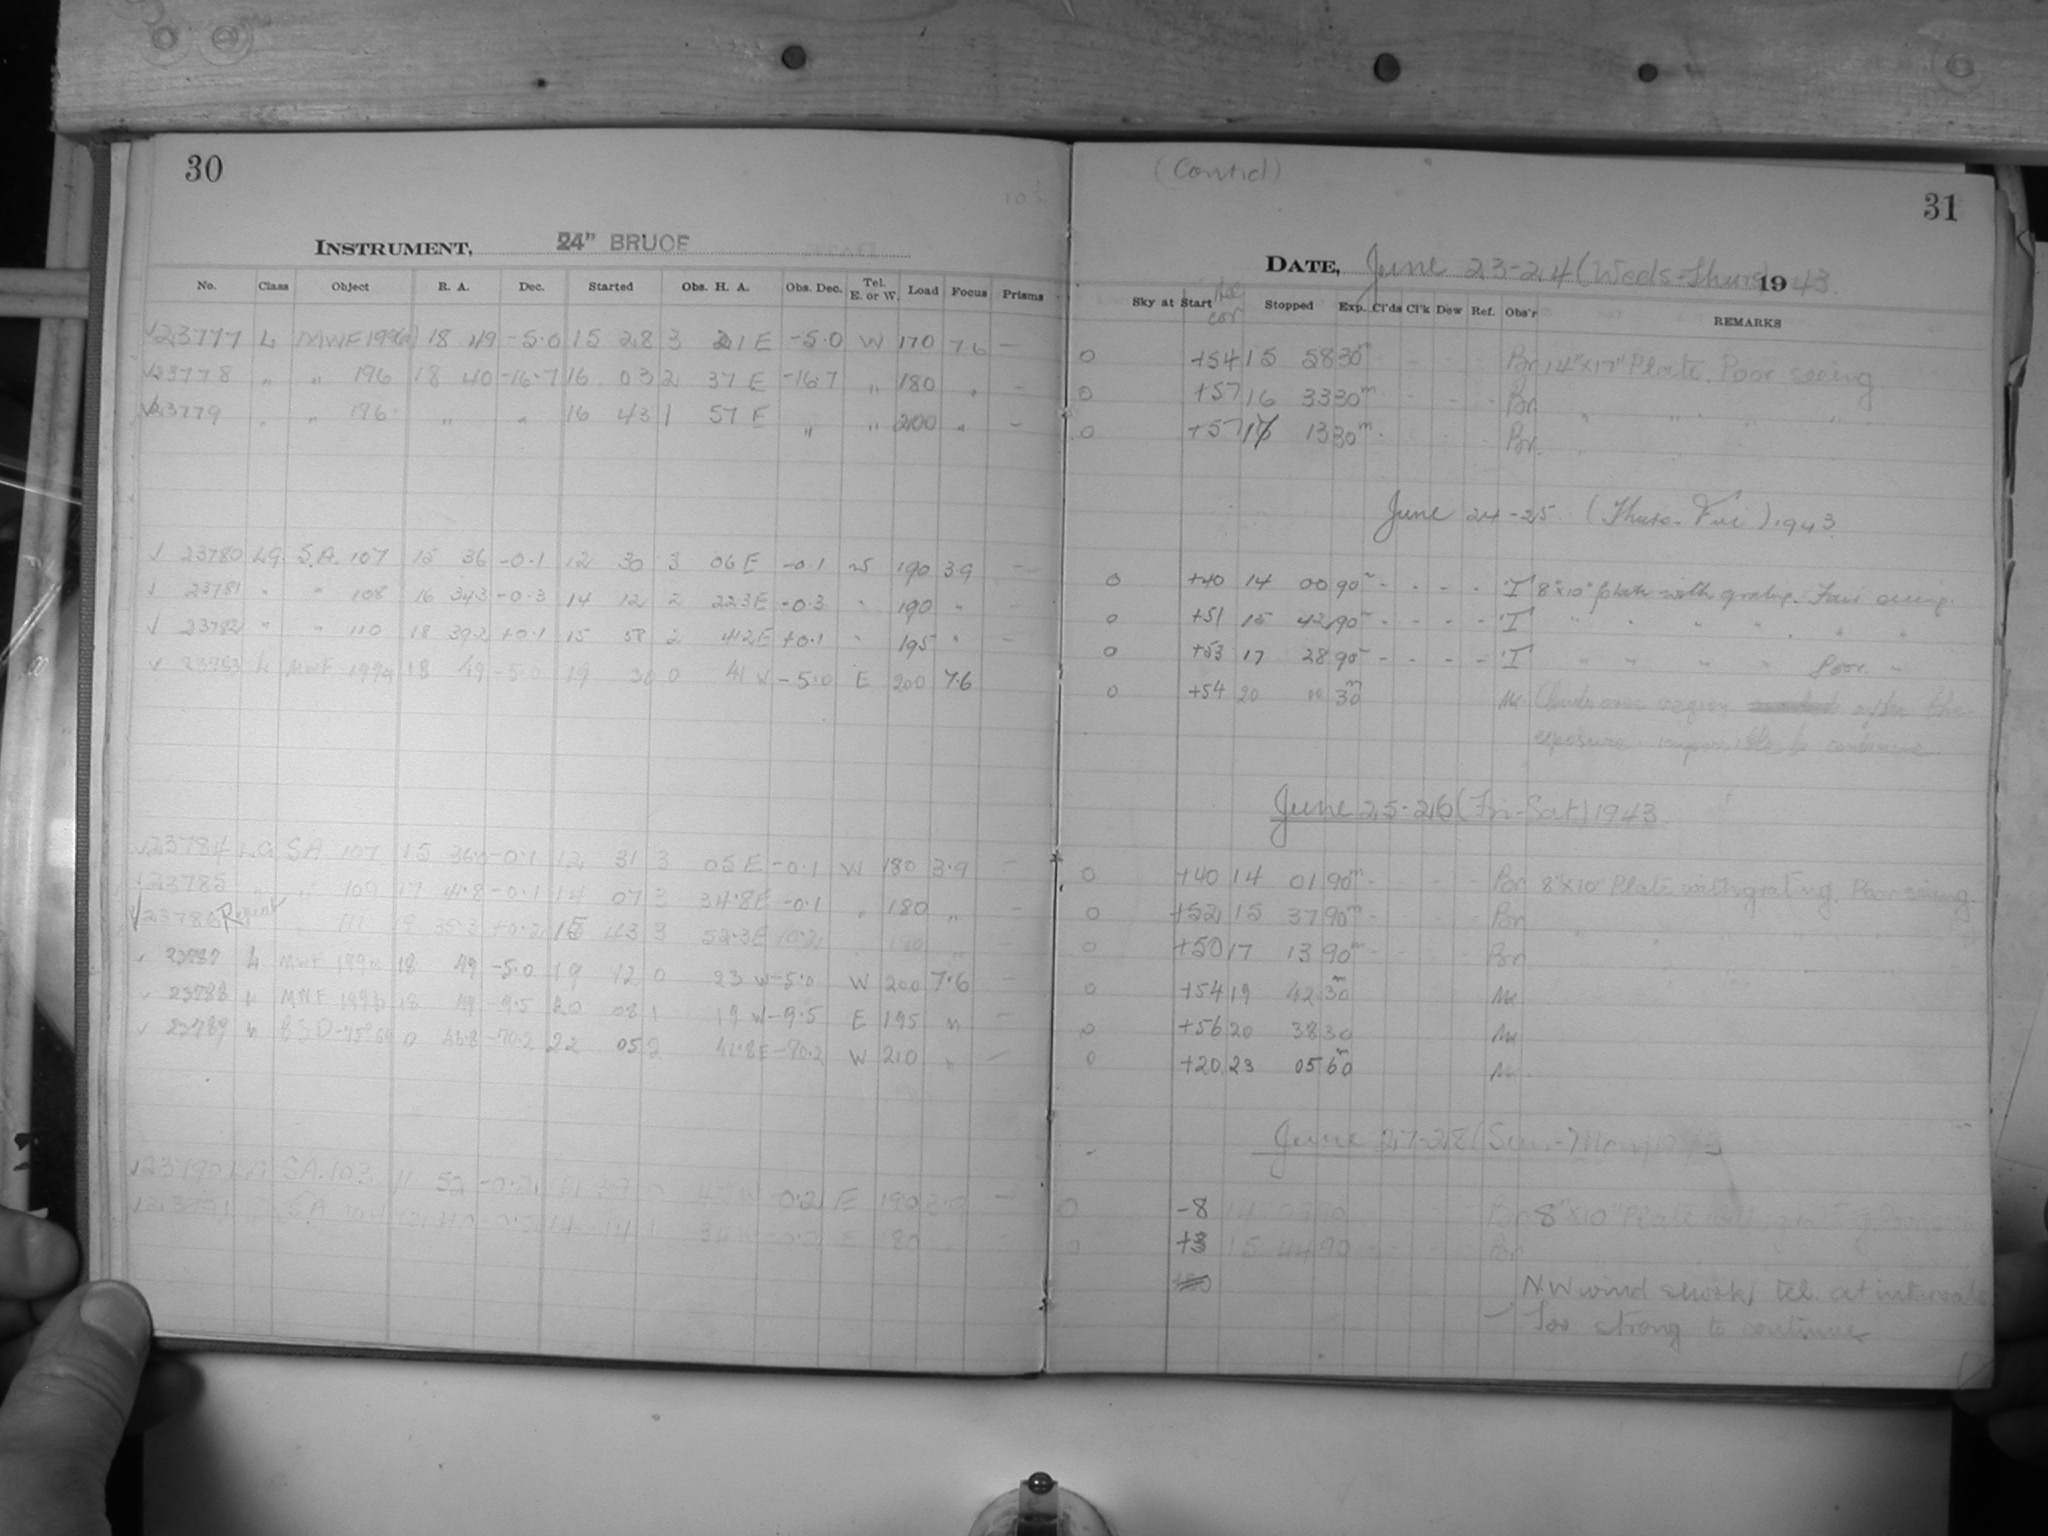 30
INSTRUMENT, 24" BRUCE
No. Class Object R. A. Dec. Started Obs. H. A. Obs. Dec. Tel. E. or W. Load Focus Prisms
√23777 L MWF 199a 18 49 -5.0 15 28 3 21 E -5.0 W 170 7.6 —
√23778 " " 196 18 40 -16.7 16 03 2 37 E -16.7 " 180 " —
√23779 " " 196 " " 16 43 1 57 E " " 200 " —
√ 23780 LG. S.A. 107 15 36 -0.1 12 30 3 06 E -0.1 W 190 3.9 —
√ 23781 " " 108 16 34.3 -0.3 14 12 2 22.3E -0.3 " 190 " —
√ 23782 " " 110 18 39.2 +0.1 15 58 2 41.2E +0.1 " 195 " —
√ 23783 L MWF 199a 18 49 -5.0 19 30 0 41 W -5.0 E 200 7.6
√23784 LG SA 107 15 36.0 -0.1 12 31 3 05 E -0.1 W 180 3.9 —
√23785 " " 109 17 41.8 -0.1 14 07 3 34.8E -0.1 " 180 " —
√23786 Repeat " 111 19 35.3 +0.2 15 43 3 52.3E +0.2 " 180 " —
√ 23787 L MWF 199a 18 49 -5.0 19 12 0 23 W -5.0 W 200 7.6 —
√ 23788 " MWF 199b 18 49 -9.5 20 08 1 19 W -9.5 E 195 " —
√ 23789 " 0 46.8 -70.2 22 05 2 41.8E -70.2 W 210 " —
√23790 LG SA.103 11 52 -0.2 W -0.2 E 190 3.9 —
√23791 " SA 104 E 180
(Contd)
31
DATE, June 23-24 (Weds-Thurs) 1943.
Sky at Start Stopped Exp. Cl'ds Cl'k Dew Ref. Obs'r REMARKS
0 +54 15 58 30m - - - - Br 14"x17" Plate. Poor seeing.
0 +57 16 33 30m - - - - Br " " " "
0 +57 17 13 30m - - - - Br. " " " "
June 24-25. (Thurs-Fri) 1943
0 +40 14 00 90m - - - - T 8"x10" plate with grating. Fair seeing.
0 +51 15 42 90m - - - - T " " " " " "
0 +53 17 28 90m - - - - T " " " " Poor. "
0 +54 20 00 30m Clouds over region after the
exposure. impossible to continue.
June 25-26 (Fri-Sat) 1943.
0 +40 14 01 90m - - - - Br 8"x10" Plate with grating. Poor seeing.
0 +52 15 37 90m - - - - Br
0 +50 17 13 90m - - - - Br
0 +54 19 42 30m
0 +56 20 38 30
0 +20 23 05 60m
June 27-28 (Sun-Mon) 1943
0 -8 14 09 90 Br 8"x10" Plate with grating Poor seeing
0 +3 15 44 90 Br
N.W wind shook tel. at intervals
— Too strong to continue